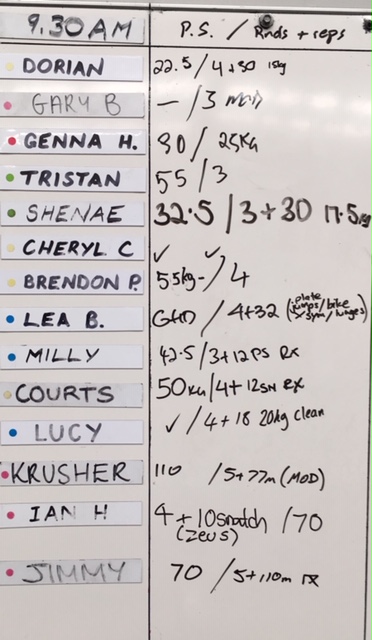 9.30AM P.S. / Rnds + reps
DORIAN 22.5 / 4+30 15kg
GARY B — / 3 mod
GENNA H. 30 / 25KG
TRISTAN 55 / 3
SHENAE 32.5 / 3+30 17.5kg
CHERYL C ✓ ✓
BRENDON P. 55kg- / 4
LEA B. GHD / 4+32 (plate jumps/bike
/lunges)
MILLY 42.5 / 3+12PS RX
COURTS 50KG / 4+12SN RX
LUCY ✓ / 4+18 20kg clean
KRUSHER 110 / 5+77m (MOD)
IAN H 4+10snatch / 70
(ZEUS)
JIMMY 70 / 5+110m rx